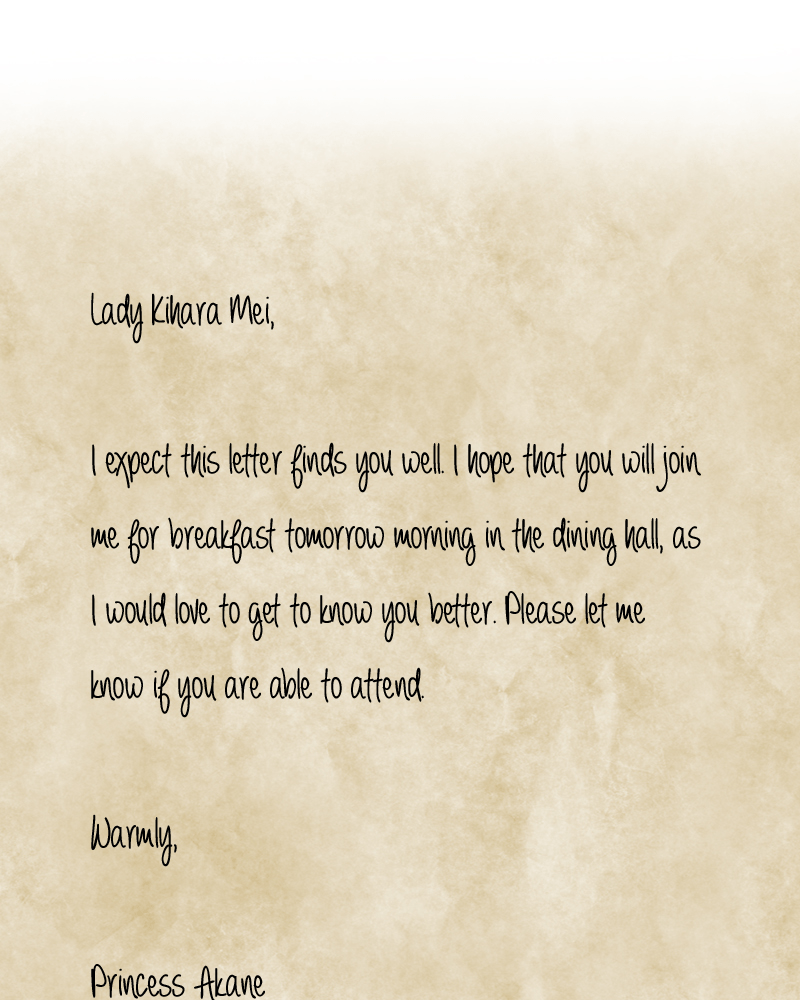 Lady Kihara Mei,
I expect this letter finds you well. I hope that you will join
me for breakfast tomorrow morning in the dining hall, as
I would love to get to know you better. Please let me
know if you are able to attend.
Warmly,
Princess Akane